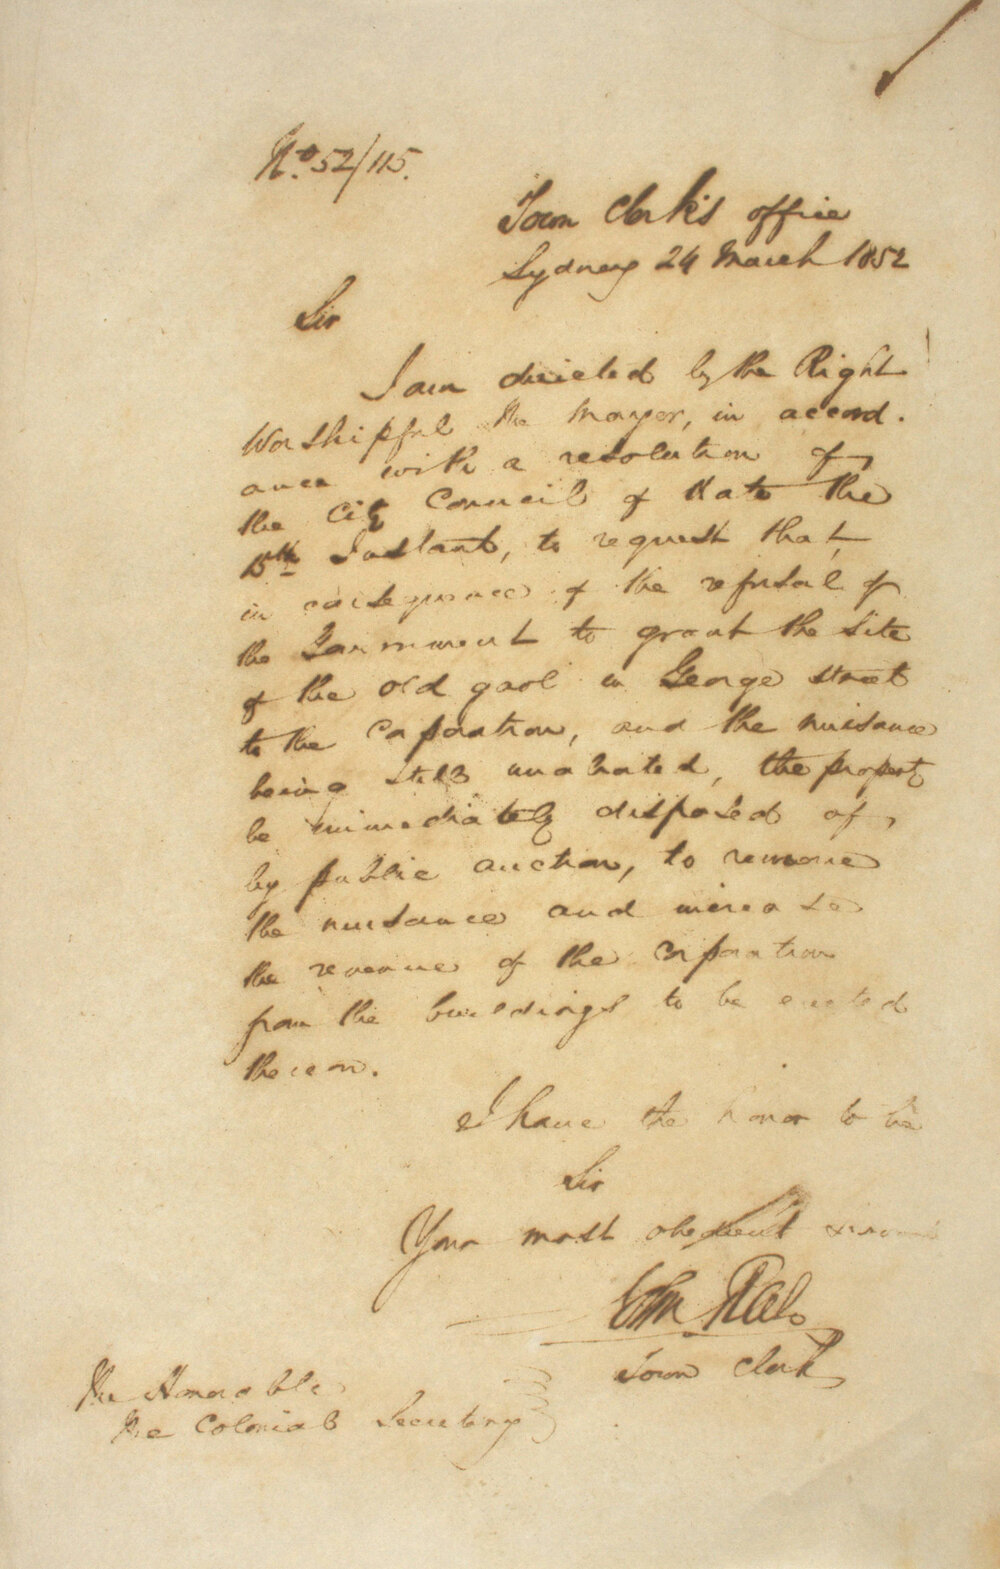 No. 52/115.
Town Clerk's office
Sydney 24 March 1852
Sir
I am directed by the Right
Worshipful the Mayor, in accord.
ance with a resolution of
the City Council of date the
15th Instant, to request that,
in consequence of the refusal of
the Government to grant the site
of the old gaol in George street
to the Corporation, and the nuisance
being still unabated, the property
be immediately disposed of,
by public auction, to remove
the nuisance and increase
the revenue of the Corporation
from the buildings to be erected
thereon.
I have the honor to be
Sir
Your most obedient servant
John Rae
Town Clerk
The Honorable
The Colonial Secretary